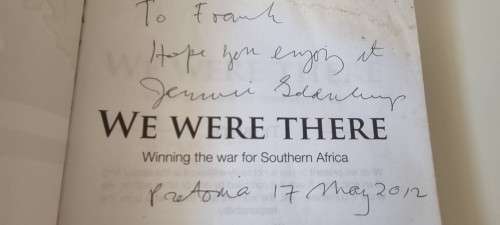 To Frank
Hope you enjoy it
Jannie Geldenhuys
WE WERE THERE
Winning the war for Southern Africa
Pretoria 17 May 2012